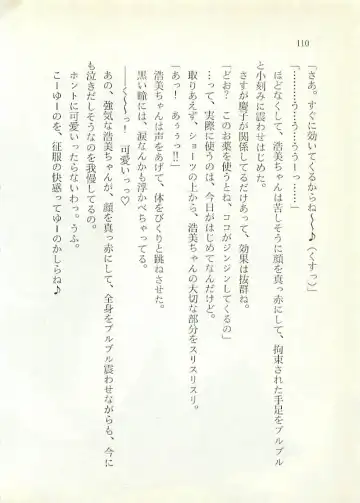 110
「さあ。すぐに効いてくるからね～～♪(くすっ)」
「………う…う…うぅー……」
ほどなくして、浩美ちゃんは苦しそうに顔を真っ赤にして、拘束された手足をブルブル
と小刻みに震わせはじめた。
さすが慶子が関係してるだけあって、効果は抜群ね。
「どお？　このお薬を使うとね、ココがジンジンしてくるの」
…って、実際に使うのは、今日がはじめてなんだけど。
取りあえず、ショーツの上から、浩美ちゃんの大切な部分をスリスリスリ。
「あっ！　あぅぅっ!!」
浩美ちゃんは声をあげて、体をびくりと跳ねさせた。
黒い瞳には、涙なんかも浮かべちゃってる。
――く～～っ！　可愛いっっ♡
あの、強気な浩美ちゃんが、顔を真っ赤にして、全身をブルブル震わせながらも、今に
も泣きだしそうなのを我慢してるの。
ホントに可愛いったらないわっ。うふ。
こーゆーのを、征服の快感ってゆーのかしらね♪